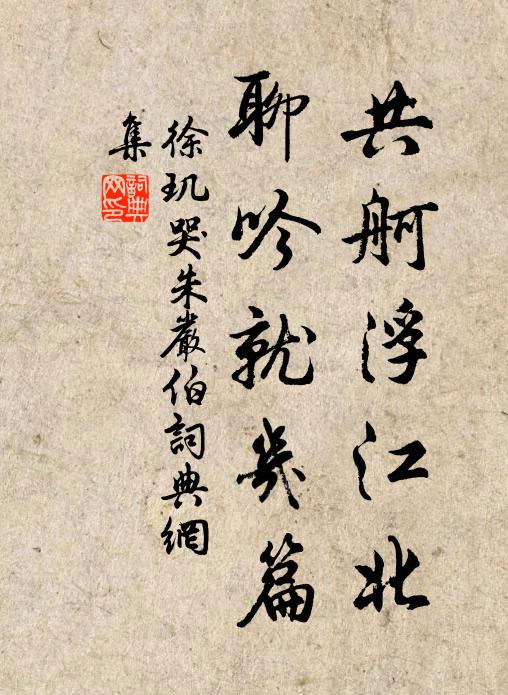 共舸浮江北
聊吟就幾篇
徐玑哭朱嚴伯詞典網
集
詞典网印